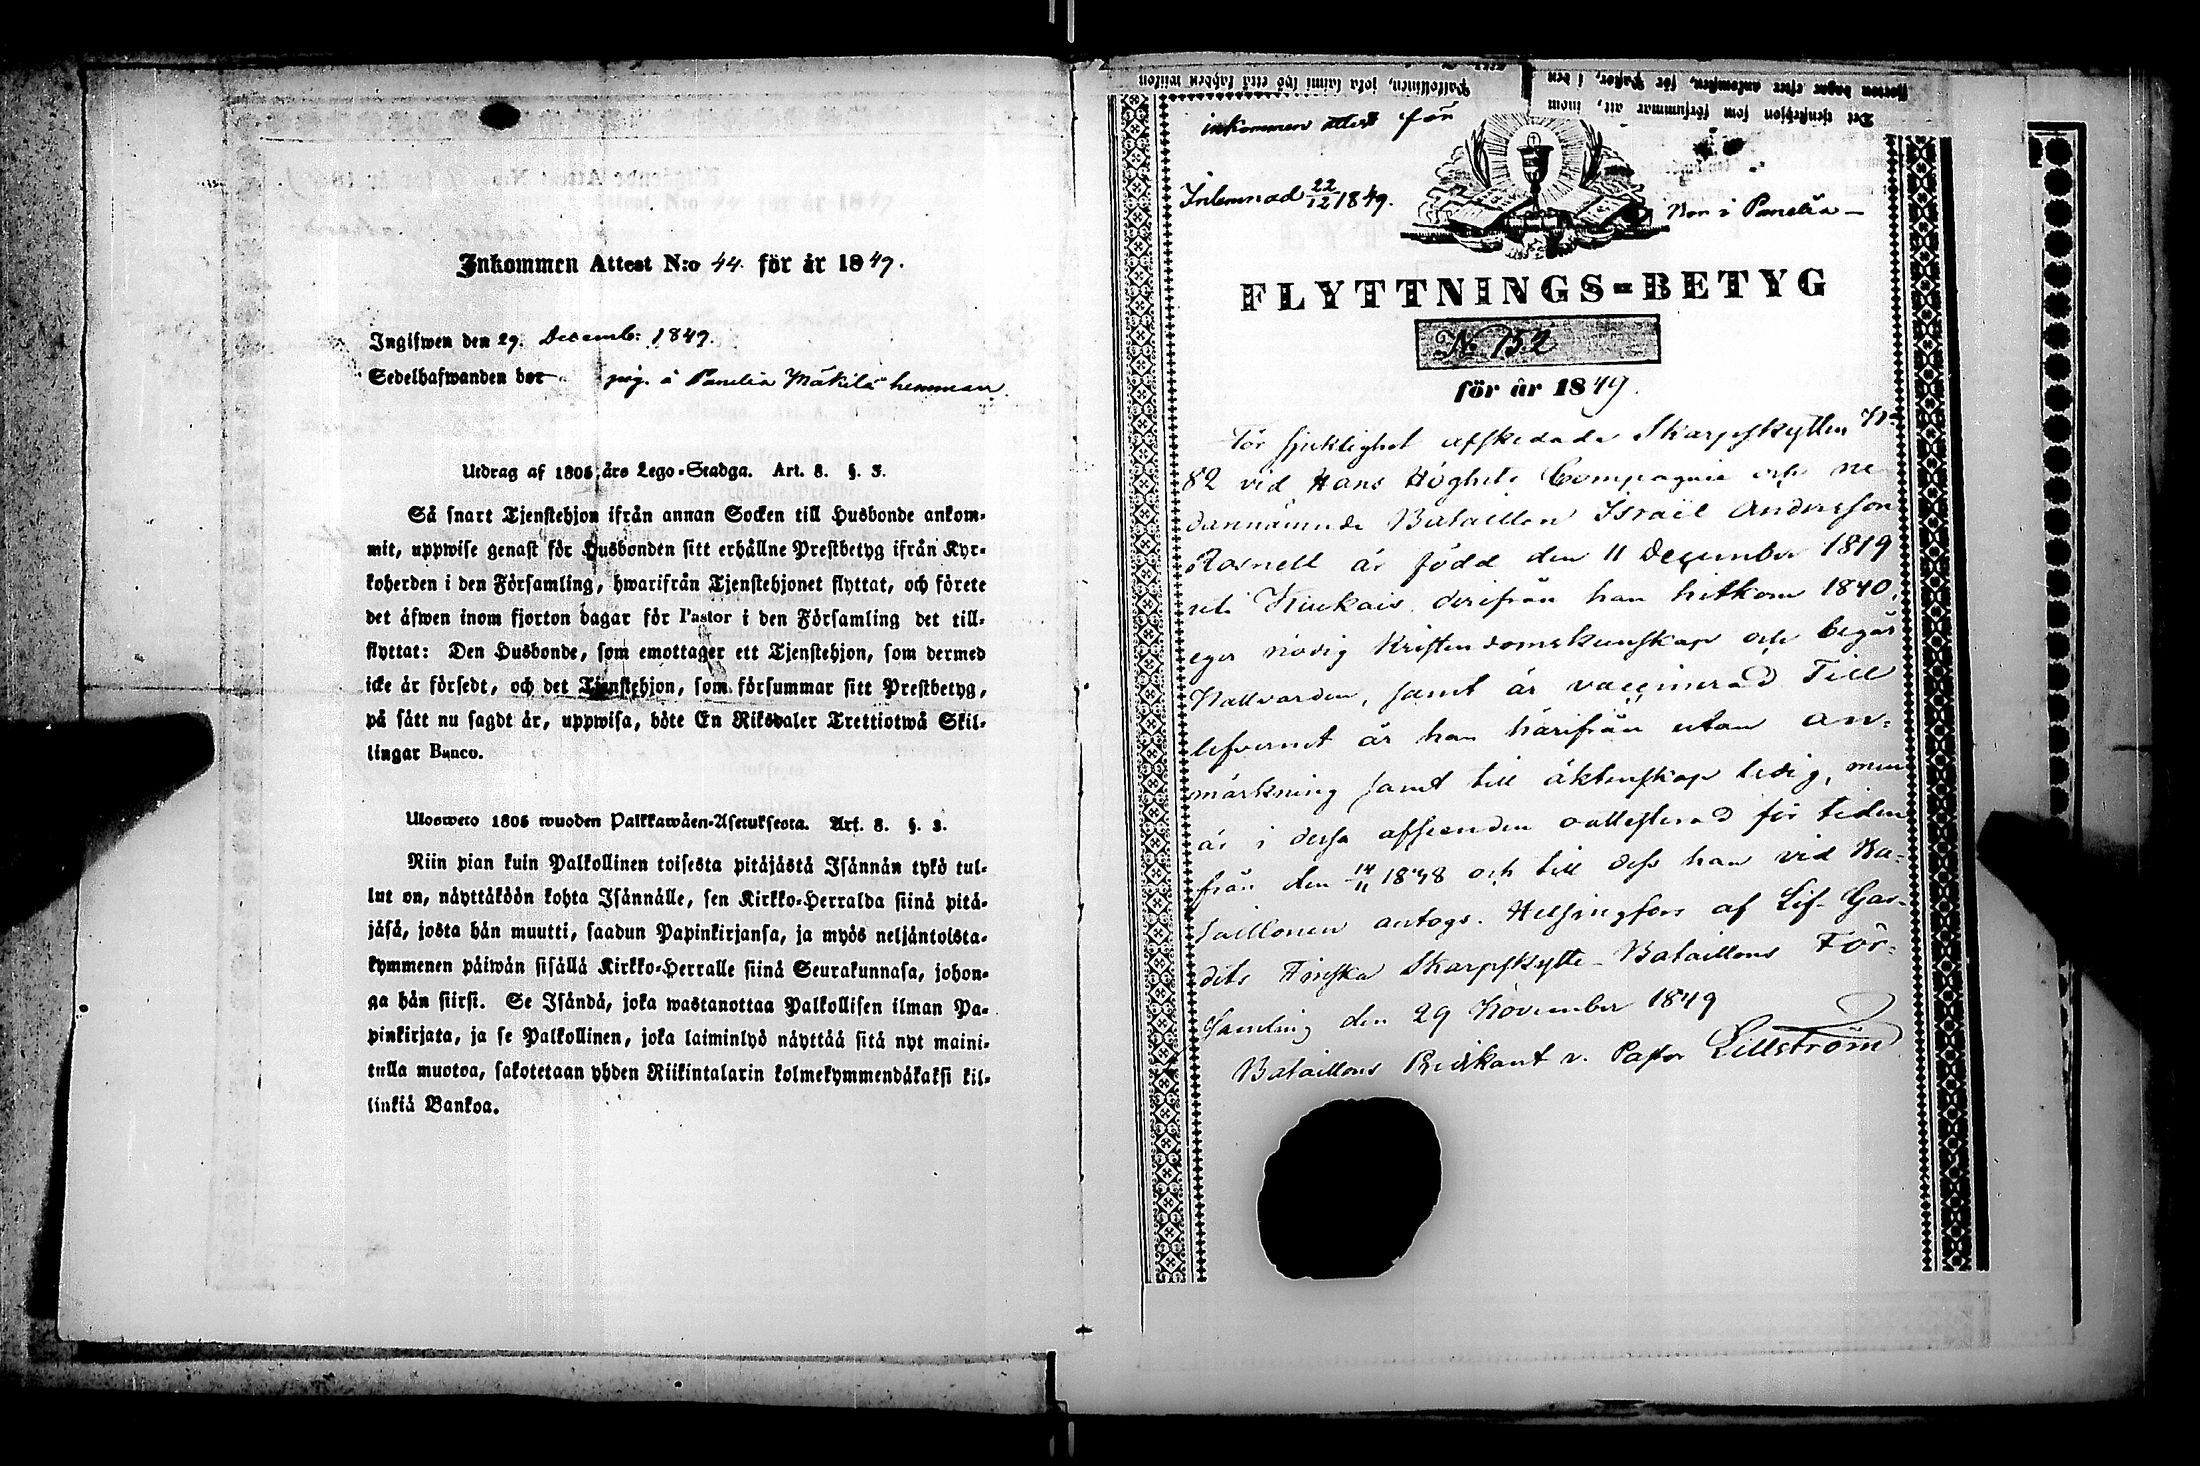 Inkommen Attest N:o 44. för år 1849.
Ingifwen den 29. Decemb: 1849.
Sedelhafwanden bor pig. å Panelia Mäkilä hemman
Utdrag af 1805 års Lego-Stadga. Art. 8. §. 3.
Så snart Tjenstehjon ifrån annan Socken till Husbonde ankom-
mit, uppwise genast för Husbonden sitt erhållne Prestbetyg ifrån Kyr-
koherden i den Församling, hwarifrån Tjenstehjonet flyttat, och förete
det äfwen inom fjorton dagar för Pastor i den Församling det till-
flyttat: Den Husbonde, som emottager ett Tjenstehjon, som dermed
icke är försedt, och det Tjenstehjon, som försummar sitt Prestbetyg,
på sätt nu sagdt är, uppwisa, böte En Riksdaler Trettiotwå Skil-
lingar Banco.
Ulosweto 1805 wuoden Palkkawäen-Asetuksesta. Art. 8. §. 3.
Niin pian kuin Palkollinen toisesta pitäjästä Isännän tykö tul-
lut on, näyttäköön kohta Isännälle, sen Kirkko-Herralda siinä pitä-
jäsä, josta hän muutti, saadun Papinkirjansa, ja myös neljäntoista-
kymmenen päiwän sisällä Kirkko-Herralle siinä Seurakunnasa, johon-
ga hän siirsi. Se Isändä, joka wastanottaa Palkollisen ilman Pa-
pinkirjata, ja se Palkollinen, joka laiminlyö näyttää sitä nyt maini-
tulla muotoa, sakotetaan yhden Riikintalarin kolmekymmendäkaksi kil-
linkiä Bankoa.
Palkollinen, joka laimi lyö että tähden
fjorton dagar efter ankomsten, för Pastor, i den
Det tjenstehjon som försummar att, inom
inkommen attest för
Inlemnad 22/12 1849.
Bor i Panelia –
FLYTTNINGS-BETYG
No 152
för år 1849.
För sjuklighet afskedade Skarpskytten N:
82 vid Hans Höghets Compagnie och ne
dannämnde Bataillon Israël Andersson
Rosnell är född den 11 December 1819
uti Kiukais, derifrån han hitkom 1840,
eger nödig Kristendomskunskap och begår
Nattvarden, samt är vaccinerad. Till
lefvernet är han härifrån utan an-
märkning samt till äktenskap ledig, men
är i dessa afseenden oattesterad för tiden
från den 14/11 1848 och till dess han vid Ba-
taillonen antogs. Helsingfors af Lif-Gar-
dets Finska Skarpskytte-Bataillons För-
samling den 29 November 1849
Bataillons Predikant v. Pastor Lillström